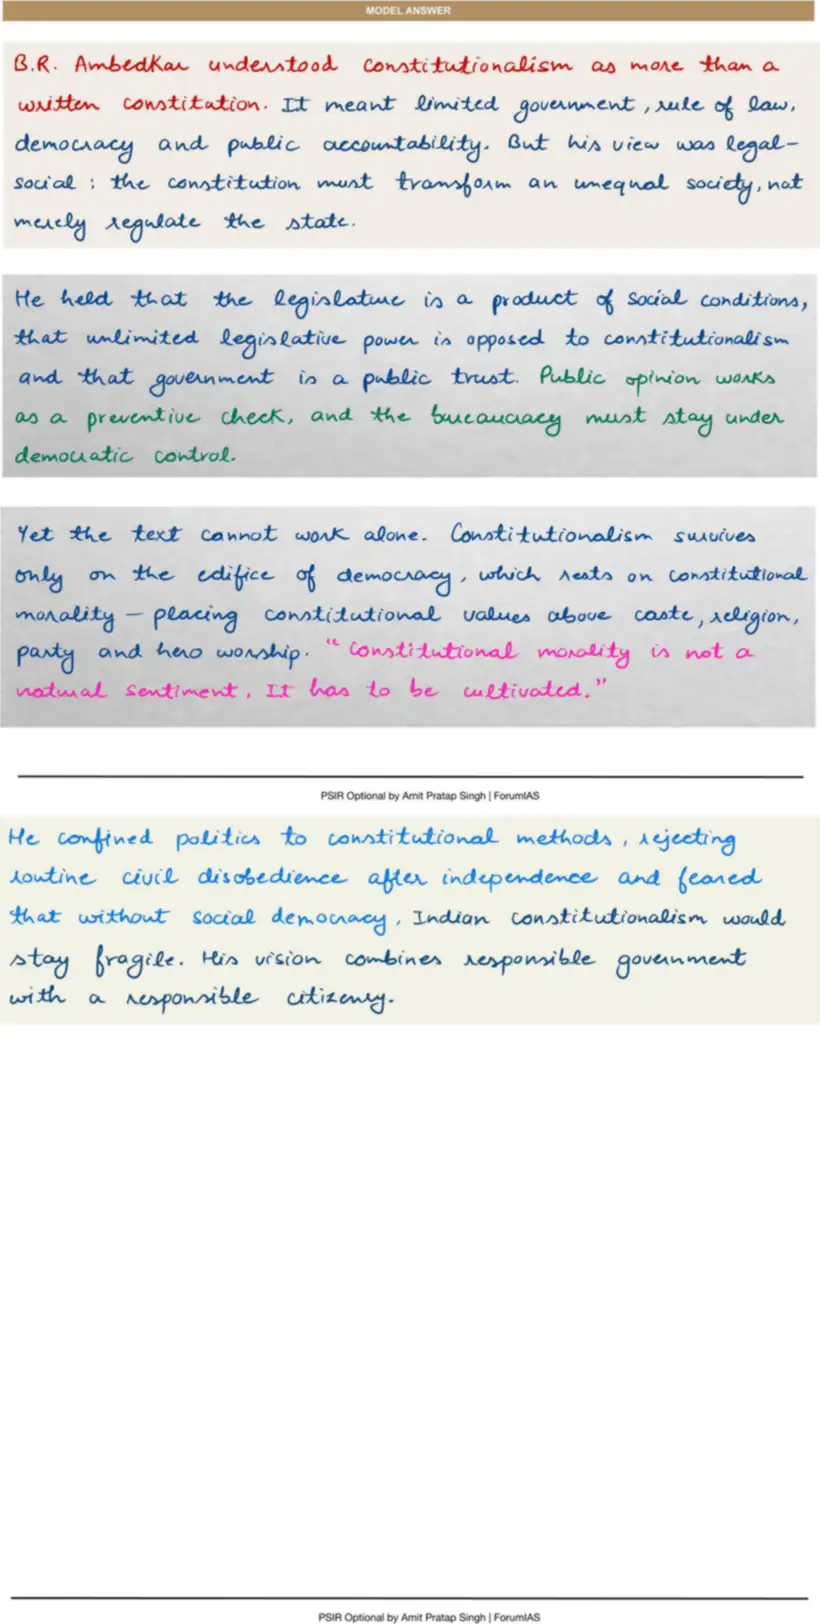 MODEL ANSWER
B.R. Ambedkar understood constitutionalism as more than a
written constitation. It meant limited government, rule of law,
democracy and public accountability. But his view was legal-
social : the constitution must transform an unequal society, not
merely regulate the state.
He held that the legislature is a product of social conditions,
that unlimited legislative power is opposed to constitutionalism
and that government is a public trust. Public opinion works
as a preventive check, and the bureaucracy must stay under
democratic control.
Yet the text cannot work alone. Constitutionalism survives
only on the edifice of democracy, which rests on constitutional
morality – placing constitutional values above caste, religion,
party and hero worship. "Constitutional morality is not a
natural sentiment. It has to be cultivated."
PSIR Optional by Amit Pratap Singh | ForumIAS
He confined politics to constitutional methods, rejecting
routine civil disobedience after independence and feared
that without social democracy, Indian constitutionalism would
stay fragile. His vision combines responsible government
with a responsible citizenry.
PSIR Optional by Amit Pratap Singh | ForumIAS